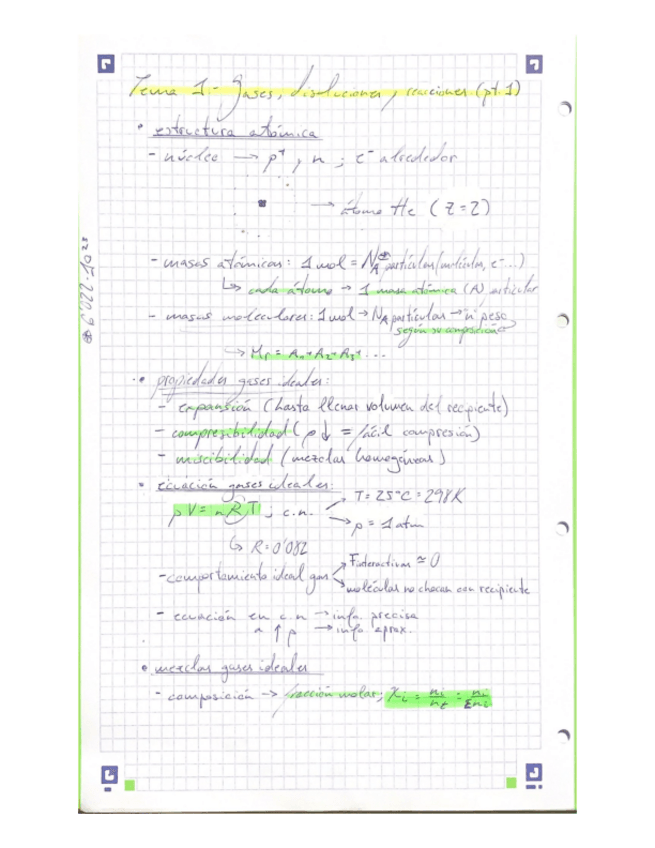 Tema 1.- Gases, disoluciones, reacciones (pt.1)
• estructura atómica
- núcleo → p⁺, n ; e⁻ alrededor
→ átomo He (Z=2)
- masas atómicas: 1 mol = N_A partículas (moléculas, e⁻...)
↳ cada átomo → 1 masa atómica (A) particular
- masas moleculares: 1 mol → N_A partículas → peso
según su composición
→ Mr = A₁+A₂+A₃+...
• propiedades gases ideales:
- expansión (hasta llenar volumen del recipiente)
- compresibilidad (ρ↓ = fácil compresión)
- miscibilidad (mezclas homogéneas)
• ecuación gases ideales:
pV = nRT ; c.n. → T = 25°C = 298K
→ p = 1 atm
↳ R = 0'082
- comportamiento ideal gas → Finteractivas ≃ 0
→ moléculas no chocan con recipiente
- ecuación en c.n → info. precisa
a ↑ p → info. aprox.
• mezclas gases ideales
- composición → fracción molar; χi = ni/nt = ni/Σni